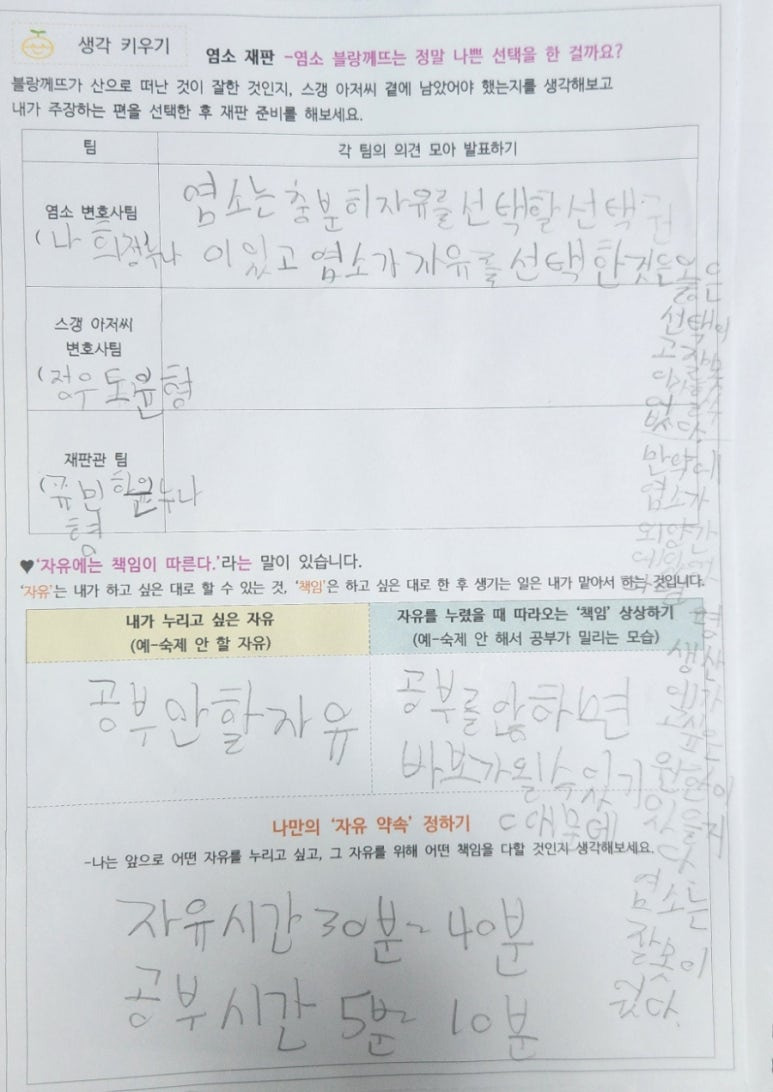 생각 키우기
염소 재판 -염소 블랑께뜨는 정말 나쁜 선택을 한 걸까요?
블랑께뜨가 산으로 떠난 것이 잘한 것인지, 스갱 아저씨 곁에 남았어야 했는지를 생각해보고
내가 주장하는 편을 선택한 후 재판 준비를 해보세요.
팀
각 팀의 의견 모아 발표하기
염소 변호사팀
(나 희정누나
염소는 충분히 자유를 선택할 선택권
이 있고 염소가 자유를 선택한것은 옳은
선택이
고 잘못
없다.
만약에
염소가
외양간
에
평
생 산
다가
원한이
있을지
다
염소는
잘못이
없다.
스갱 아저씨
변호사팀
(정우 도윤형
재판관 팀
(규빈 하윤누나
형
♥'자유에는 책임이 따른다.'라는 말이 있습니다.
'자유'는 내가 하고 싶은 대로 할 수 있는 것, '책임'은 하고 싶은 대로 한 후 생기는 일은 내가 맡아서 하는 것입니다.
내가 누리고 싶은 자유
(예-숙제 안 할 자유)
자유를 누렸을 때 따라오는 '책임' 상상하기
(예-숙제 안 해서 공부가 밀리는 모습)
공부안할자유
공부를 않하면
바보가 될수있기
때문에
나만의 '자유 약속' 정하기
-나는 앞으로 어떤 자유를 누리고 싶고, 그 자유를 위해 어떤 책임을 다할 것인지 생각해보세요.
자유시간 30분~40분
공부시간 5분~10분